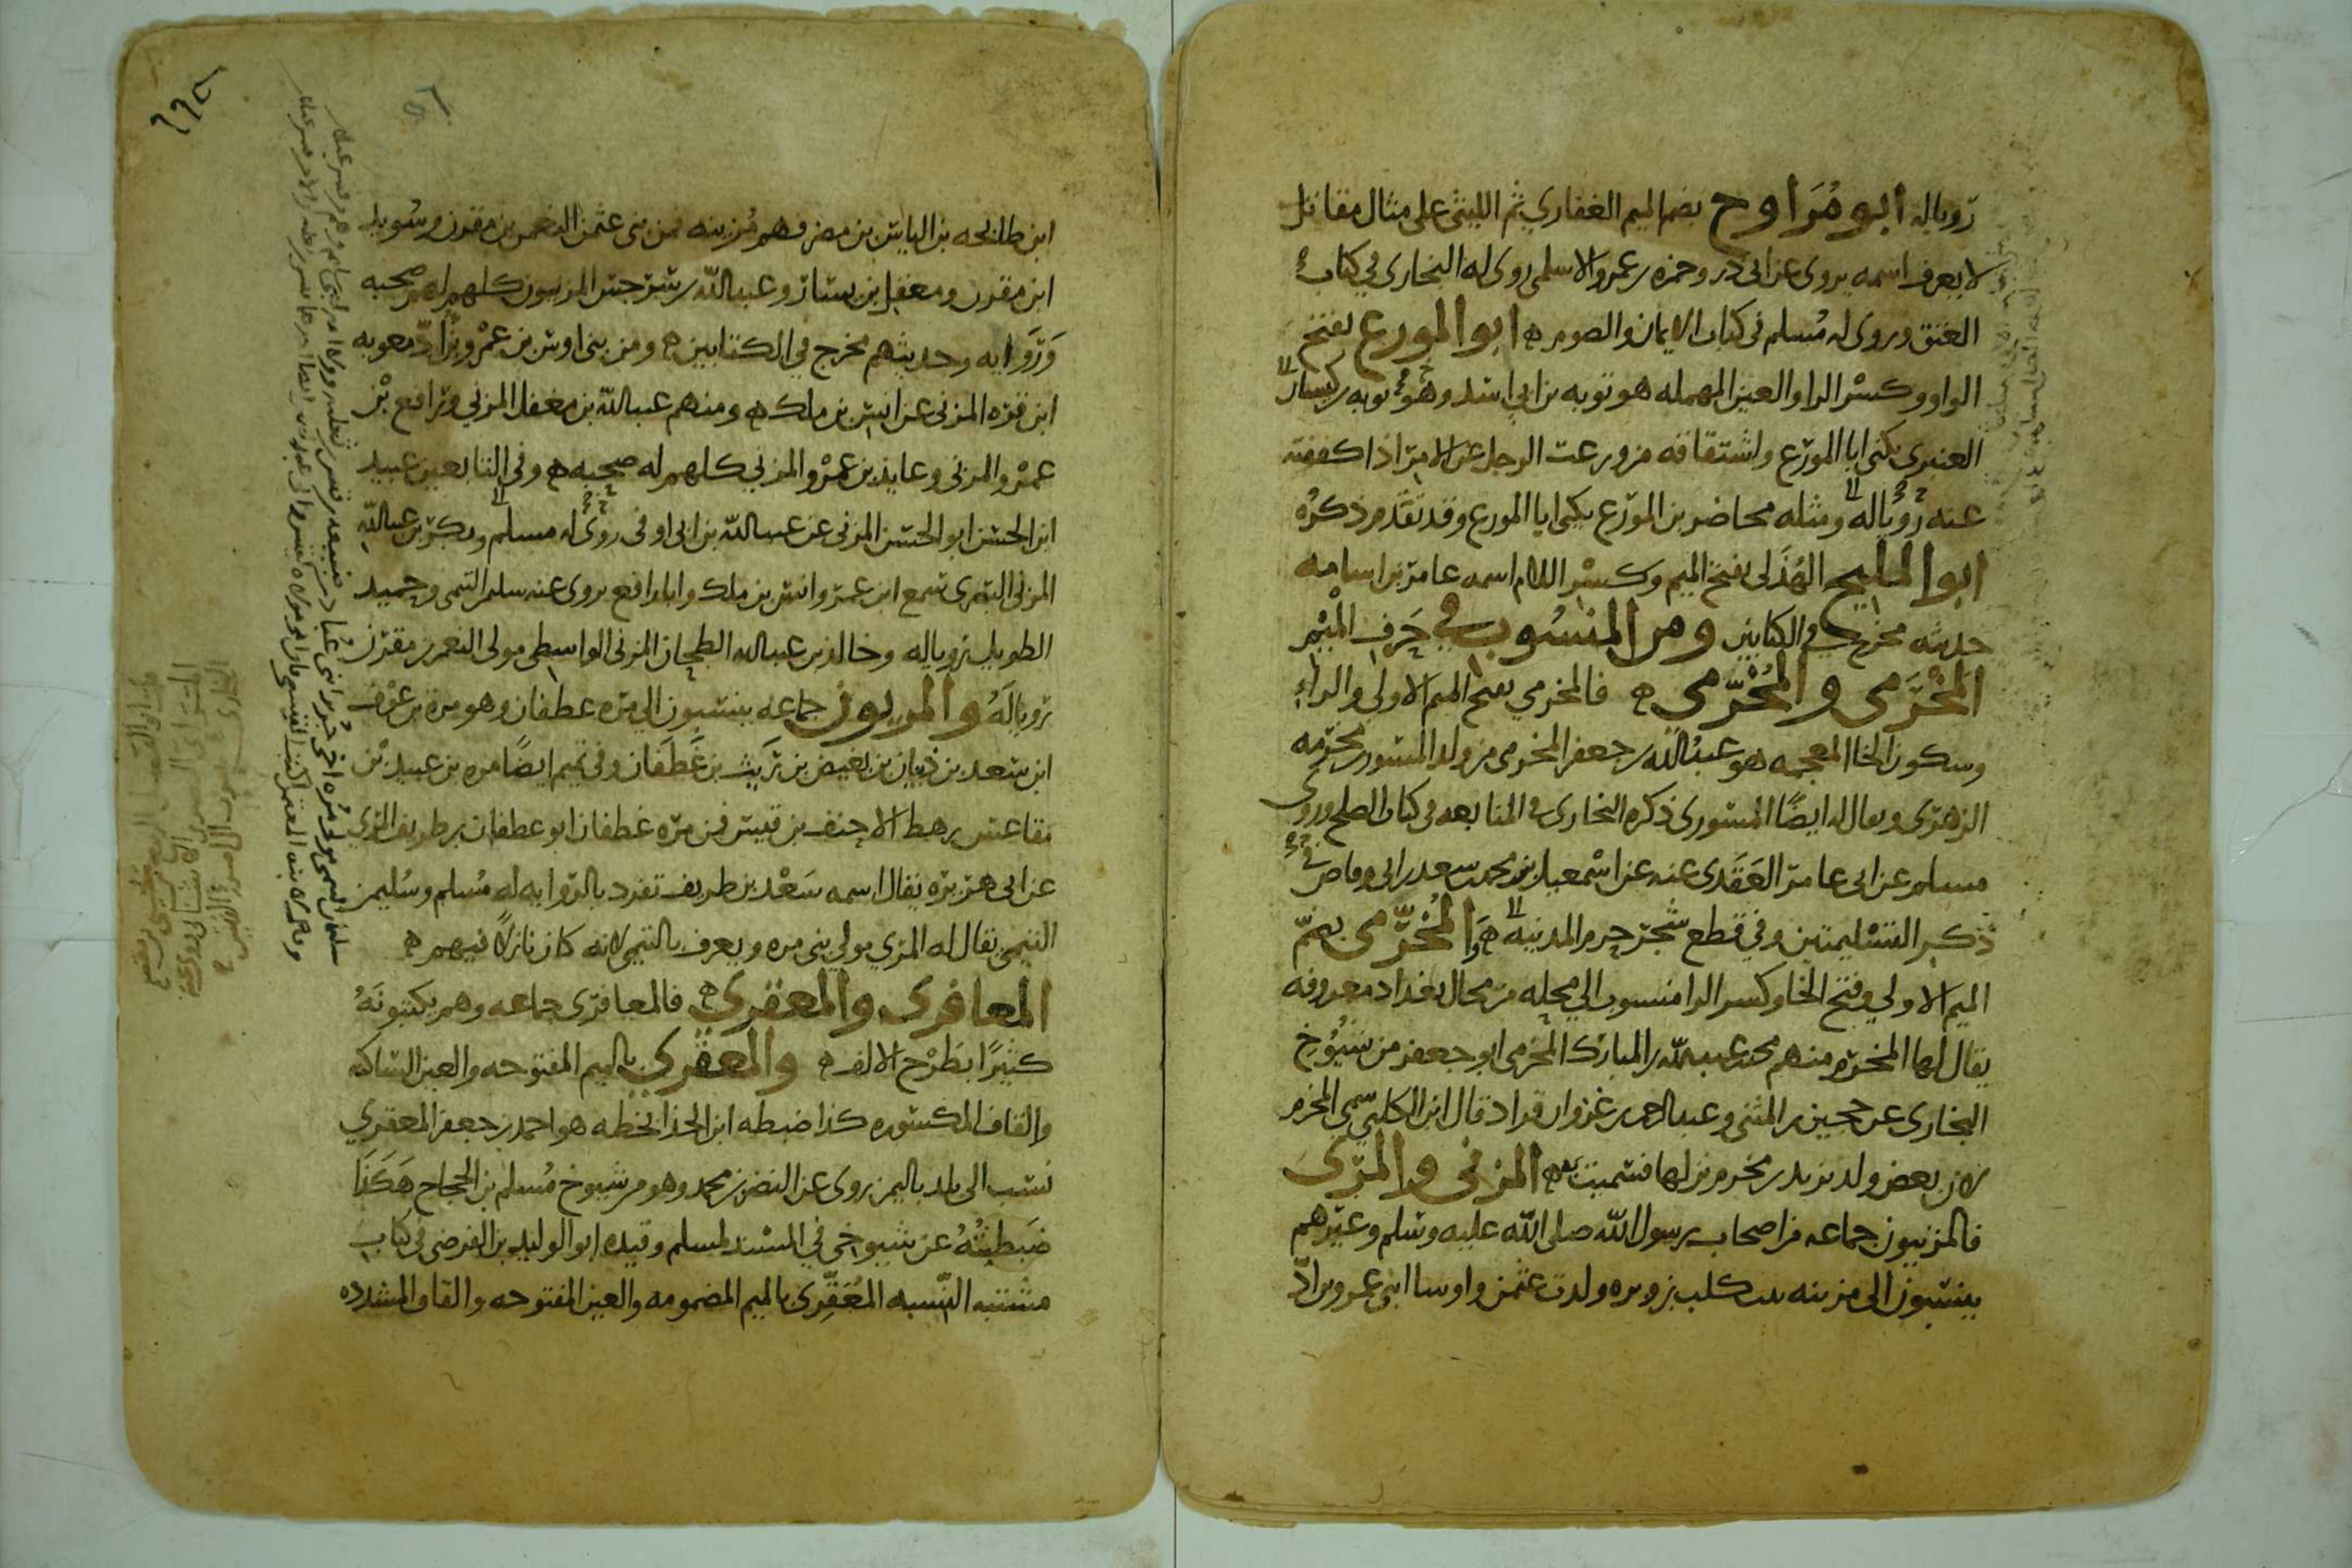 رويا له ابو مُرَاوح بضم الميم الغفاري ثم الليثي على مثال مقاتل
لا يعرف اسمه يروى عن ابي ذر وحمزه بن عمرو الاسلمي روى له البخارى في كتاب
العتق وروى له مُسلم في كتاب الايمان والصوم ه ابو المورع بفتح
الواو وكسْر الرا والعين المهمله هو توبه بن ابي اسد وهو توبه بن كيسان
العنبرى يكنى ابا المورّع واشتقاقه من ورعت الرجل عن الامر اذا كففته
عنه رويا له ومثله محاضر بن المورّع يكنى ابا المورع وقد تقدم ذكرُه
ابو المليح الهُذَلى بفتح الميم وكسْر اللام اسمه عامر بن اسامه
حديثه مخرج في الكتابين ومن المنسُوب في حَرف الميْم
المَخْرَمي والمُخَرّمي ه فالمخرمي بفتح الميم الاولي والراءِ
وسكون الخا المعجمه هو عبدُ الله بن جعفر المخرمى من ولد المسور بن مخرمه
الزهرى ويقال له ايضًا المسورى ذكره البخارى في المتابعه فى كتاب الصلح وروى
مسلم عن ابى عامر العَقَدى عنه عن اسْمعيل بن محمد بن سعد بن ابى وقاص في
ذكر التسْليمتين وفي قطع شجر حرم المدينه ه وَالمُخَرّمى بضمّ
الميم الاولي وفتح الخا وكسر الرا منسوب الي محله من محال بغداد معروفه
يقال لها المخرّم منهم محمد بن عبد الله بن المبارك المخرمى ابو جعفر من شيُوْخ
البخارى عن حجين بن المثنى وعبد الرحمن بن غزوان قراد قال ابن الكلبي سمي المخرم
لان بعض ولد يزيد بن مخرم نزلها فسميت به ه المزنى والمرّى
فالمزنيون جماعه من اصحاب رسول الله صلى الله عليه وسَلم وغيرهم
ينتسبون الى مزينه بنت كلب بن وبره ولدت عثمن واوسا ابنى عمرو بن ادّ
ابن طابخه بن الياس بن مضر فهم مُزينه فمن بنى عثمن النعمن بن مقرن وسُويد
ابن مقرن ومعقل بن يسار وعبد الله بن سرجس المزنيون كلهم لهم صحبه
وَرَوَايه وحديثهم مخرج في الكتابين ه ومن بنى اوس بن عمْرو بن ادّ معويه
ابن قره المزنى عن انس بن ملك ه ومنهم عبد الله بن مغفل المزني ورافع بْن
عمْرو المزنى وعايذ بن عمْرو المزني كلهم له صحبه ه وفى التابعين عبيد
ابن الحسن ابو الحسن المزنى عن عبد الله بن ابى اوفى روى له مسلم وبكر بن عبد الله
المزنى البصرى سمع ابن عمر وانس بن ملك وابا رافع روى عنه سليم التيمى وحميد
الطويل رويا له وخالد بن عبد الله الطحان المزنى الواسطى مولى النعمن بن مقرّن
رويا لَهُ والمريون جماعه ينتسبون الي مره غطفان وهو مرة بن عوْف
ابن سَعد بن ذبيان بن بغيض بن ريث بن غَطَفَان وفي تميم ايضًا مره بن عبيد بْن
مقاعس رهط الاحنف بن قيس فمن مرّه غطفان ابو غطفان بن طريف المرّي
عن ابى هريره يقال اسمه سَعْد بن طريف تفرد بالرّوايه له مُسلم وسُليمن
التيمى يقال له المرّي مولي بنى مره ويعرف بالتيمى لانه كان نازلاً فيهم ه
المعافرى والمعقري ه فالمعافرّى جماعه وهم يكتبونَهُ
كثيرًا بطرْح الالف ه والمعقري بالميم المفتوحه والعين الساكنه
والقاف المكسوره كذا ضبطه ابن الحذا بخطه هو احمد بن جعفر المعقري
نسب الى بلد باليمن روى عن النضر بن محمد وهو من شيوخ مُسلم بن الحجاج هَكَذَا
ضَبطتُهُ عن شيوخي في المسْند لمسلم وقيده ابو الوليد بن الفرضى في كتاب
مشتبه النّسبه المُعَقِّرى بالميم المضمومه والعين المفتوحه والقاف المشدده